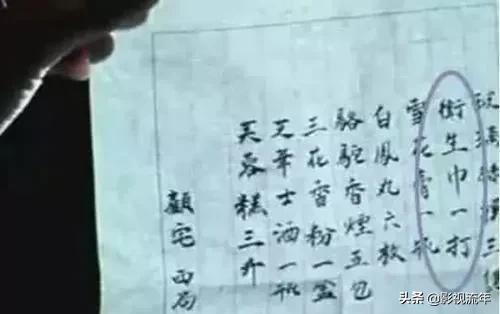 玻璃絲襪三
衛生巾一打
雪花膏一瓶
白鳳丸六枚
駱駝香煙五包
三花香粉一盒
華士酒一瓶
芙蓉糕三斤
顧宅
头条 @影视流年